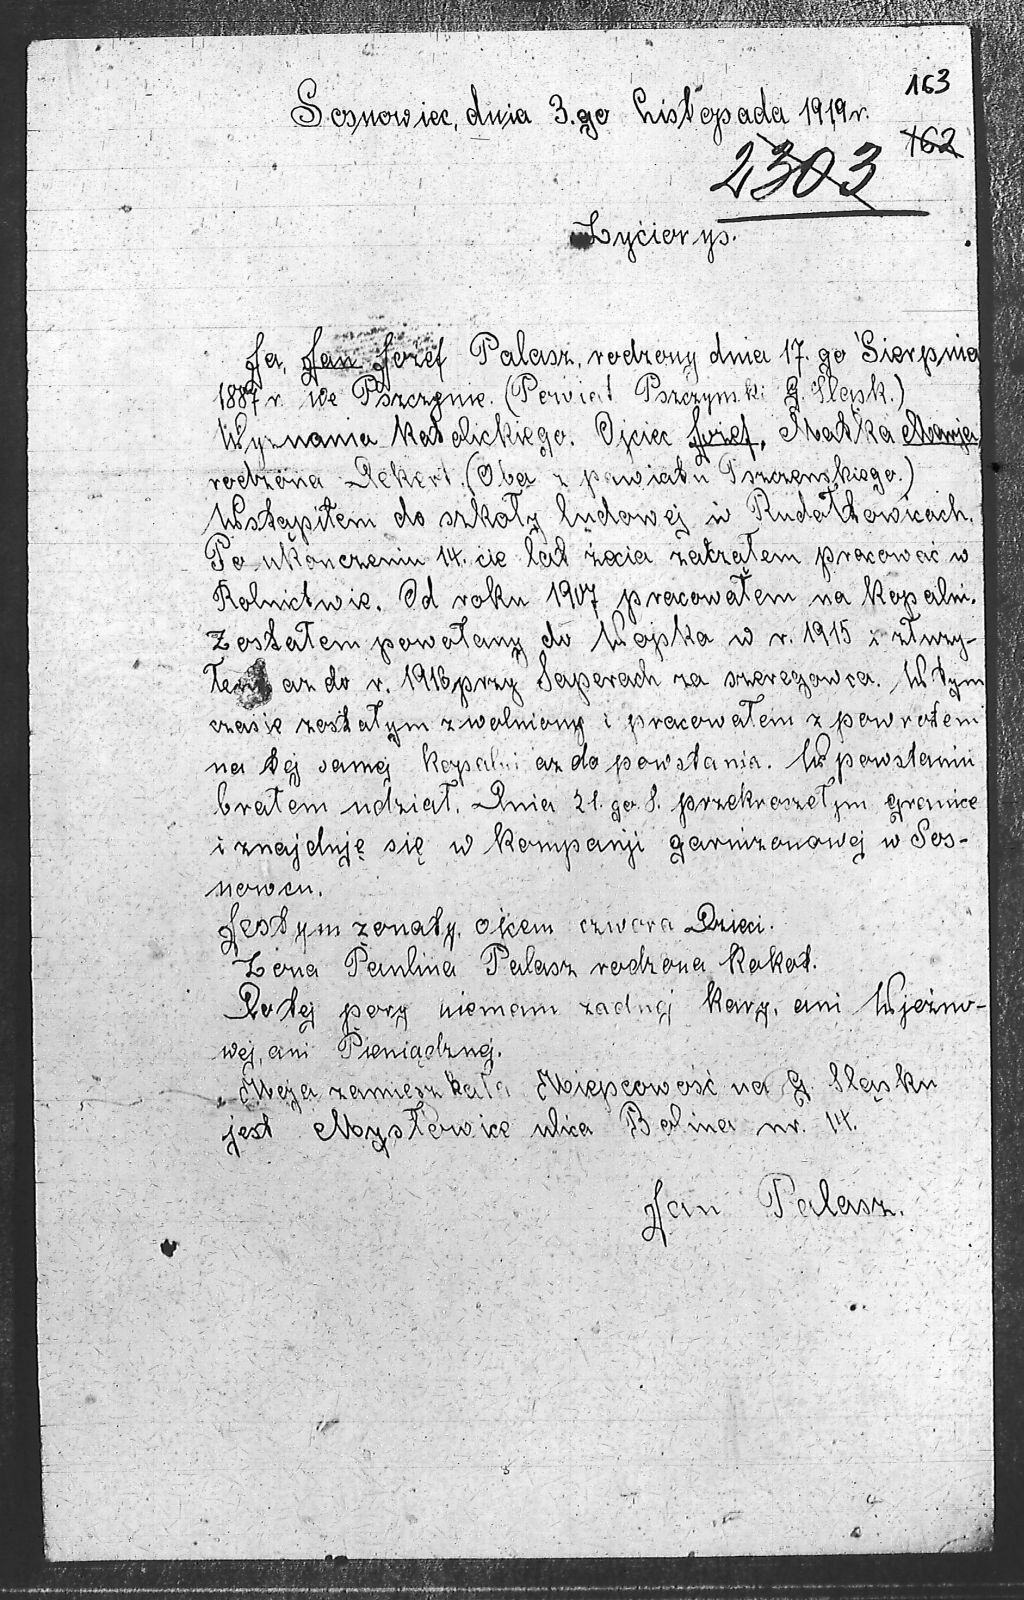 163
Sosnowiec, dnia 3.go Listopada 1919 r.
162
2303
Zyćiorys.
Ja, Jan Jozef Palasz, rodzony dnia 17. go Sierpnia
1887 r. we Pszczynie. (Powiat Pszczynski G. Sląsk.)
Wyznania katolickiego. Ojciec Jozef, Matka Marja,
rodzona Rekert. (Oba z pawiatu Pszczenskiego.)
Wstąpiłem do szkoły ludowej w Rudołtowicach.
Po ukonczeniu 14. cie lat życia zacząłem pracować w
Rolnictwie. Od roku 1907 pracowałem na kopalni.
Zostałem powołany do Wojska w r. 1915 i złurzy-
łem az do r. 1916 przy Saperach za szeregowca. W tym
czasie zostałym zwolniony i pracowałem z powrotem
na tej samej kopalni az do powstania. W powstaniu
brałem udział. Dnia 21. go. 8. przekroszełym granice
i znajduję się w kompanji garnizonowej w Sos-
nowcu.
Jestym zonaty, ojcem czwora Dzieci.
Zona Paulina Palasz rodzona Kokot.
Do tej pory niemam zadnej kary, ani Wjeźno-
wej, ani Pieniądznej.
Moja zamieszkała Miepcowość na G. Sląsku
jest Mysłowice ulica Bolina nr. 14.
Jan Palasz.